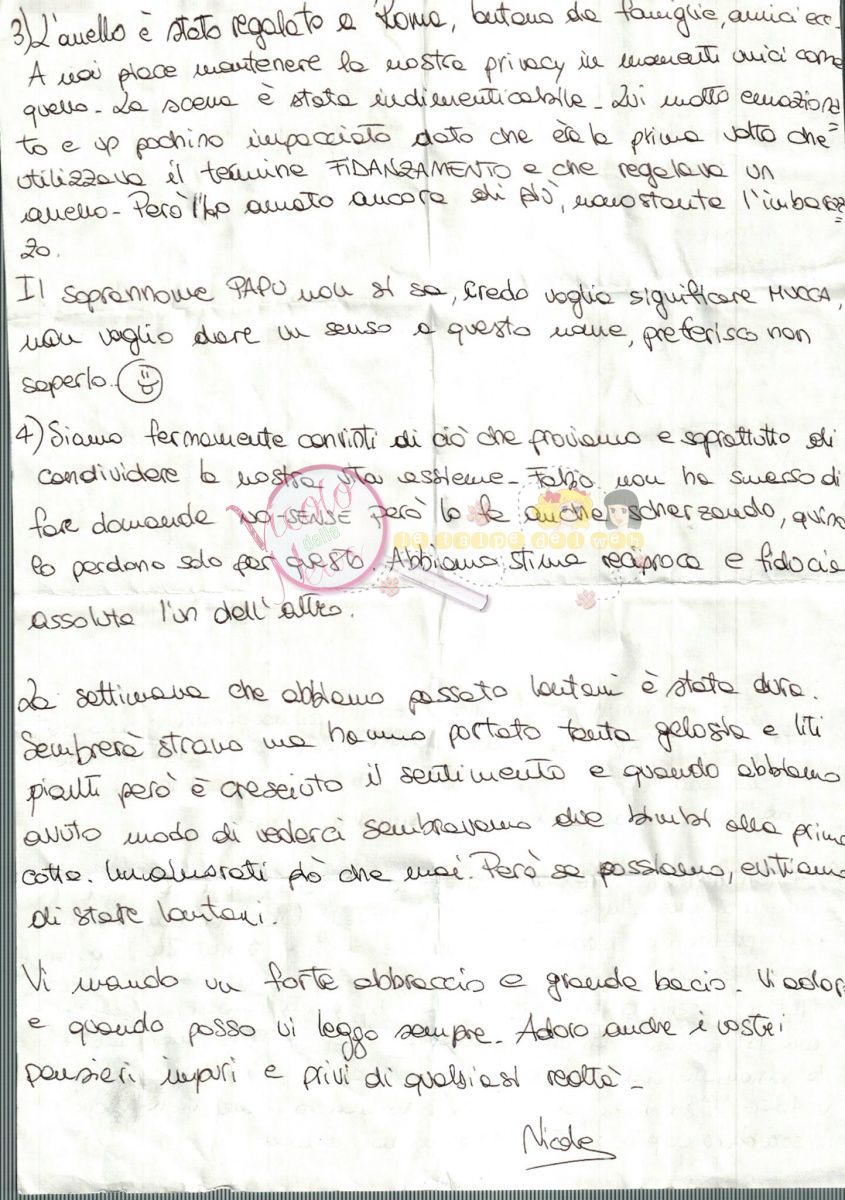 3) L'anello è stato regalato a Roma, lontano da famiglie, amici ecc.
A noi piace mantenere la nostra privacy in momenti unici come
quello - La scena è stata indimenticabile - Lui molto emoziona=
to e un pochino impacciato dato che era la prima volta che
utilizzava il termine FIDANZAMENTO e che regalava un
anello - Però l'ho amato ancora di più, nonostante l'imbaraz=
zo.
Il soprannome PAPU non si sa, credo voglia significare MUCCA,
non voglio dare un senso a questo nome, preferisco non
saperlo.
4) Siamo fermamente convinti di ciò che proviamo e soprattutto di
condividere la nostra vita assieme - Fabio non ha smesso di
fare domande NO-SENSE però lo fa anche scherzando, quindi
lo perdono solo per questo. Abbiamo stima reciproca e fiducia
assoluta l'un dell'altro.
Vicolo
delle
News
le talpe del web
La settimana che abbiamo passato lontani è stata dura.
Sembrerà strano ma hanno portato tanta gelosia e liti
pianti però è cresciuto il sentimento e quando abbiamo
avuto modo di vederci sembravamo due bimbi alla prima
cotta. Innamorati più che mai. Però se possiamo, evitiamo
di stare lontani.
Vi mando un forte abbraccio e grande bacio - Vi adoro
e quando posso vi leggo sempre - Adoro anche i vostri
pensieri impuri e privi di qualsiasi realtà -
Nicole